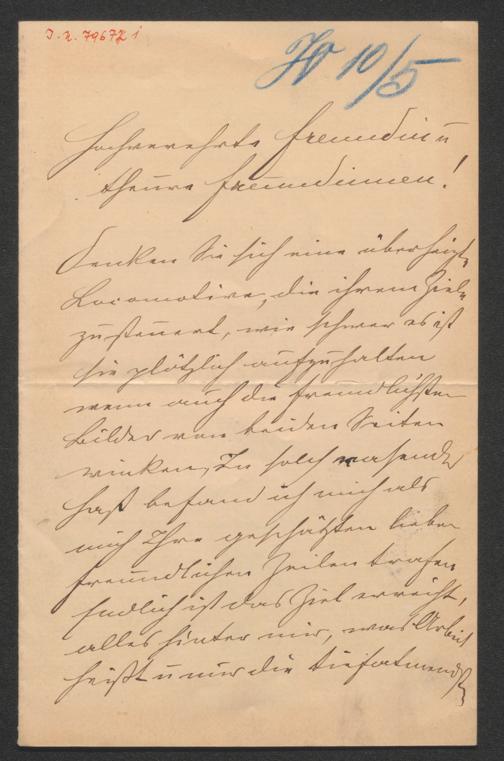 J. N. 79672 i
IV 10/5
Hochverehrte Freundin u
theure Freundinnen!
Denken Sie sich eine überheizte
Locomotive, die ihrem Ziele
zusteuert, wie schwer es ist
sie plötzlich aufzuhalten
wenn auch die freundlichsten
Bilder von beiden Seiten
winken. In solch rasender
Hast befand ich mich als
mich Ihre geschätzten lieben
freundlichen Zeilen trafen
Endlich ist das Ziel erreicht,
alles hinter mir, was Arbeit
heißt u nur die tiefatmende